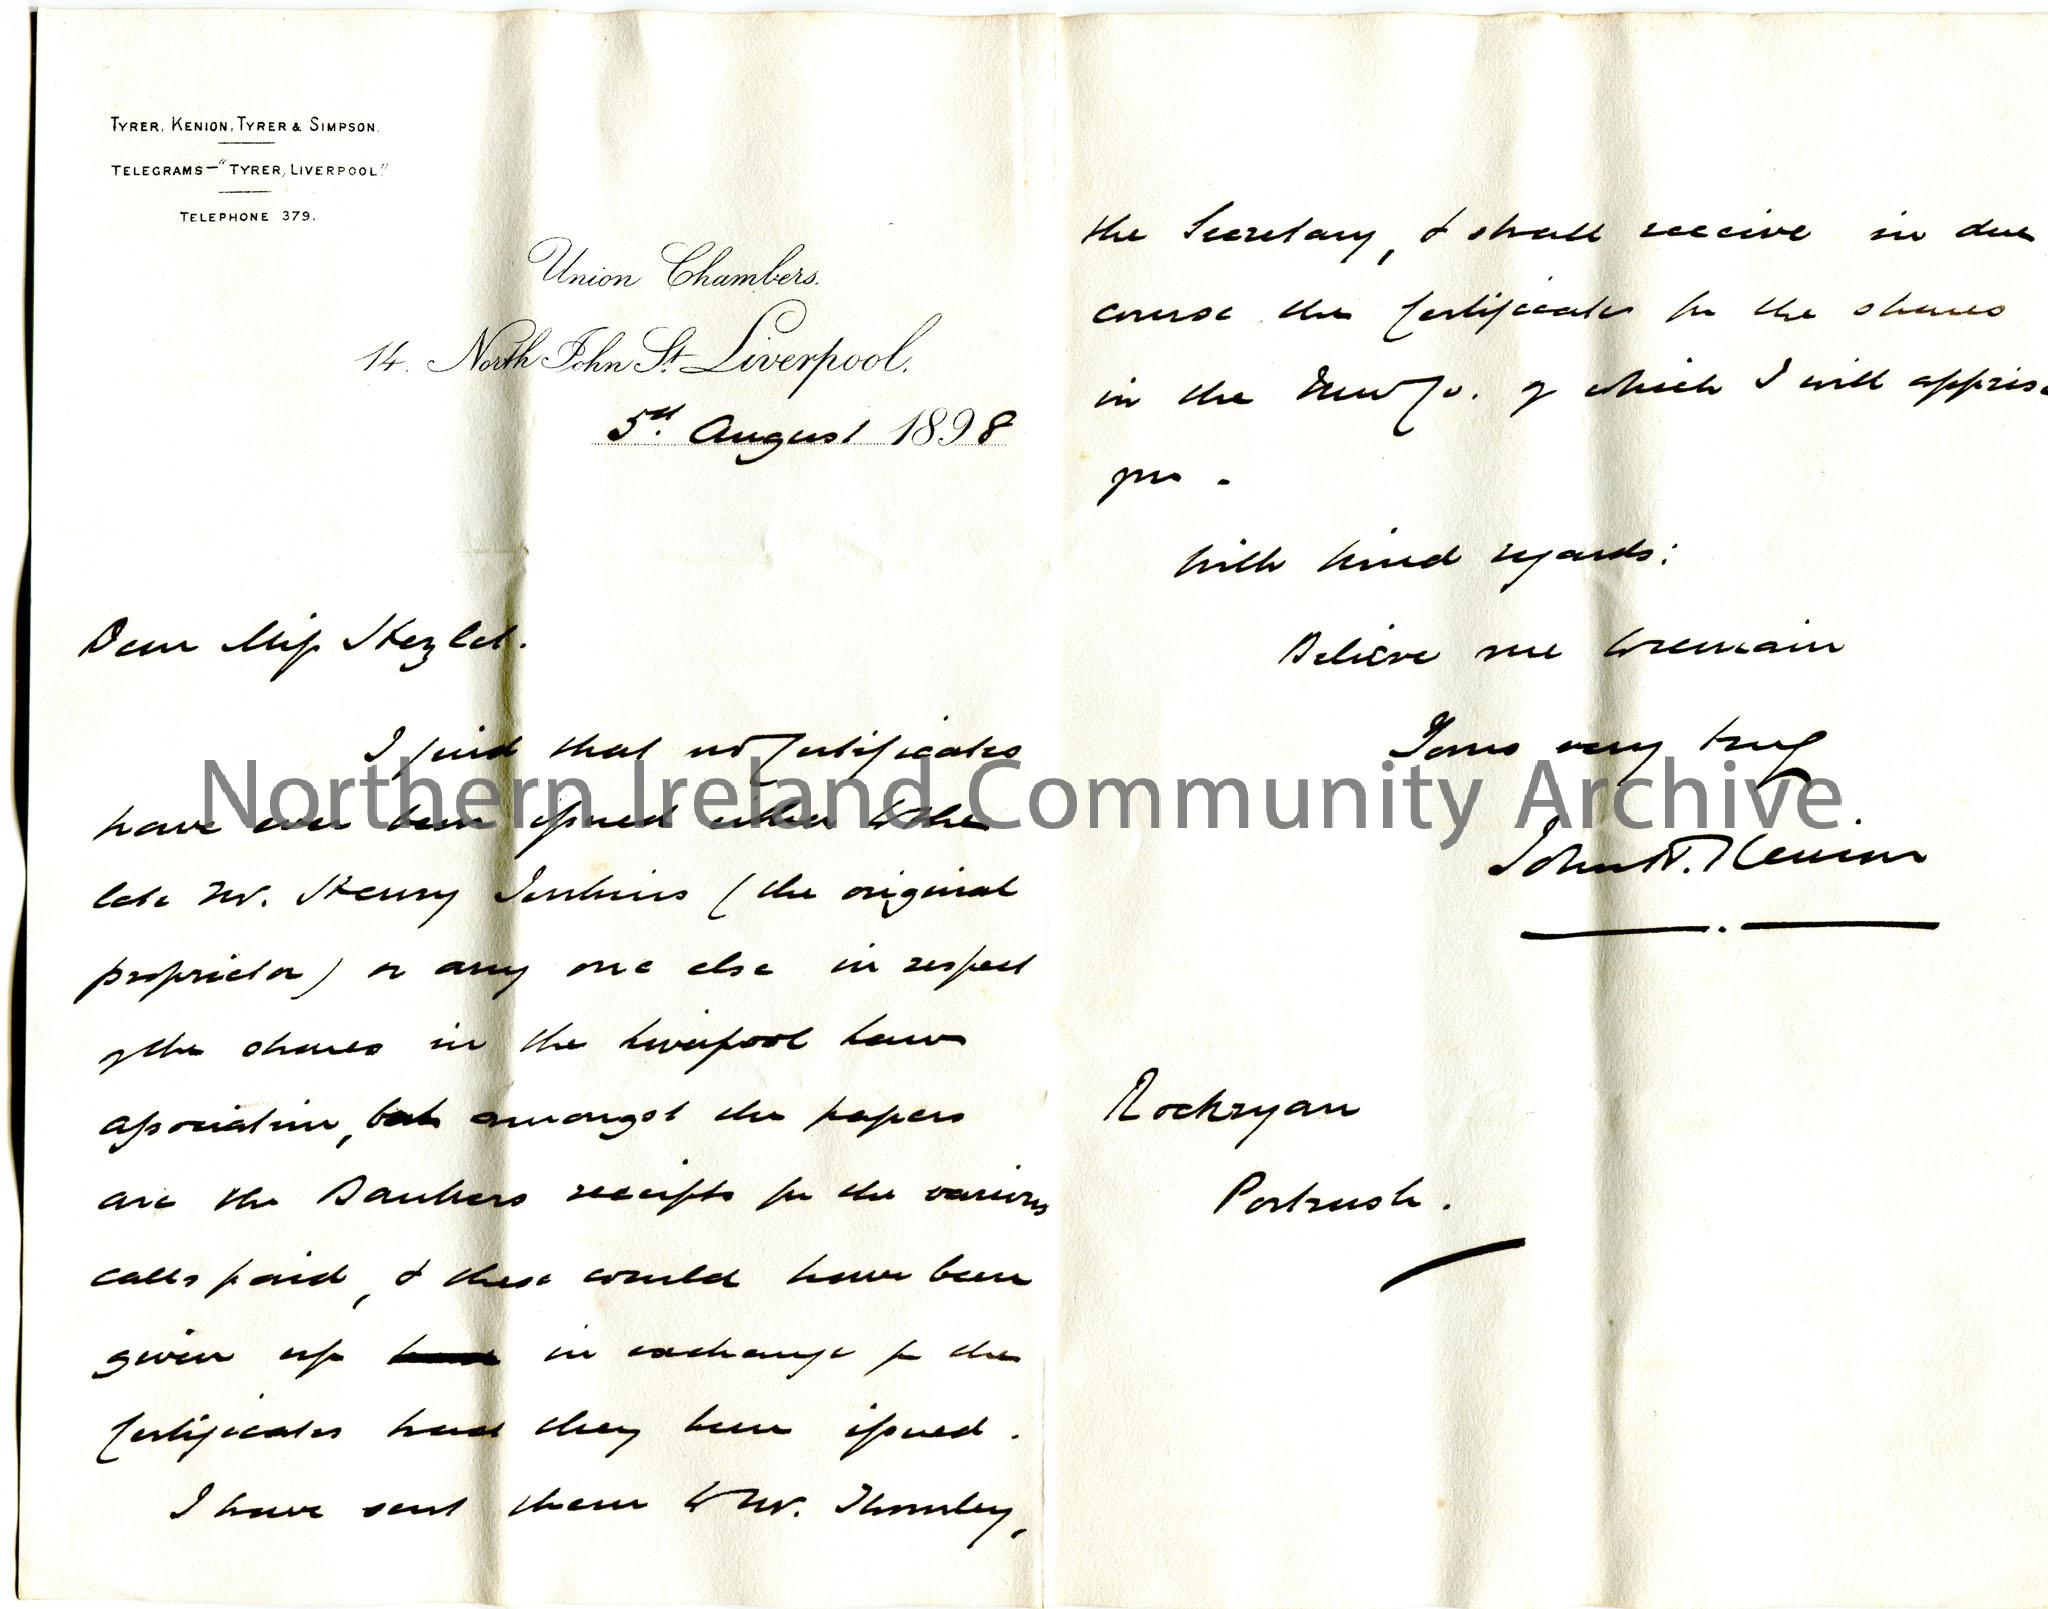 TYRER, KENION, TYRER & SIMPSON.
TELEGRAMS—"TYRER, LIVERPOOL."
TELEPHONE 379.
Union Chambers.
14. North John St. Liverpool.
5th August 1898
Dear Miss Hezlet.
I find that no Certificates
have ever been issued either to the
late Mr. Henry Jenkins (the original
proprietor) or any one else in respect
of the shares in the Liverpool Lawn
association, but amongst the papers
are the Bankers receipts for the various
calls paid, & these would have been
given up in exchange for the
Certificates had they been issued.
I have sent them to Mr. Thornley,
the Secretary, & shall receive in due
course the Certificates for the shares
in the New Co. of which I will apprise
you.
With kind regards:
Believe me to remain
Yours very truly
John N. Kenion
Rockryan
Portrush.
Northern Ireland Community Archive.